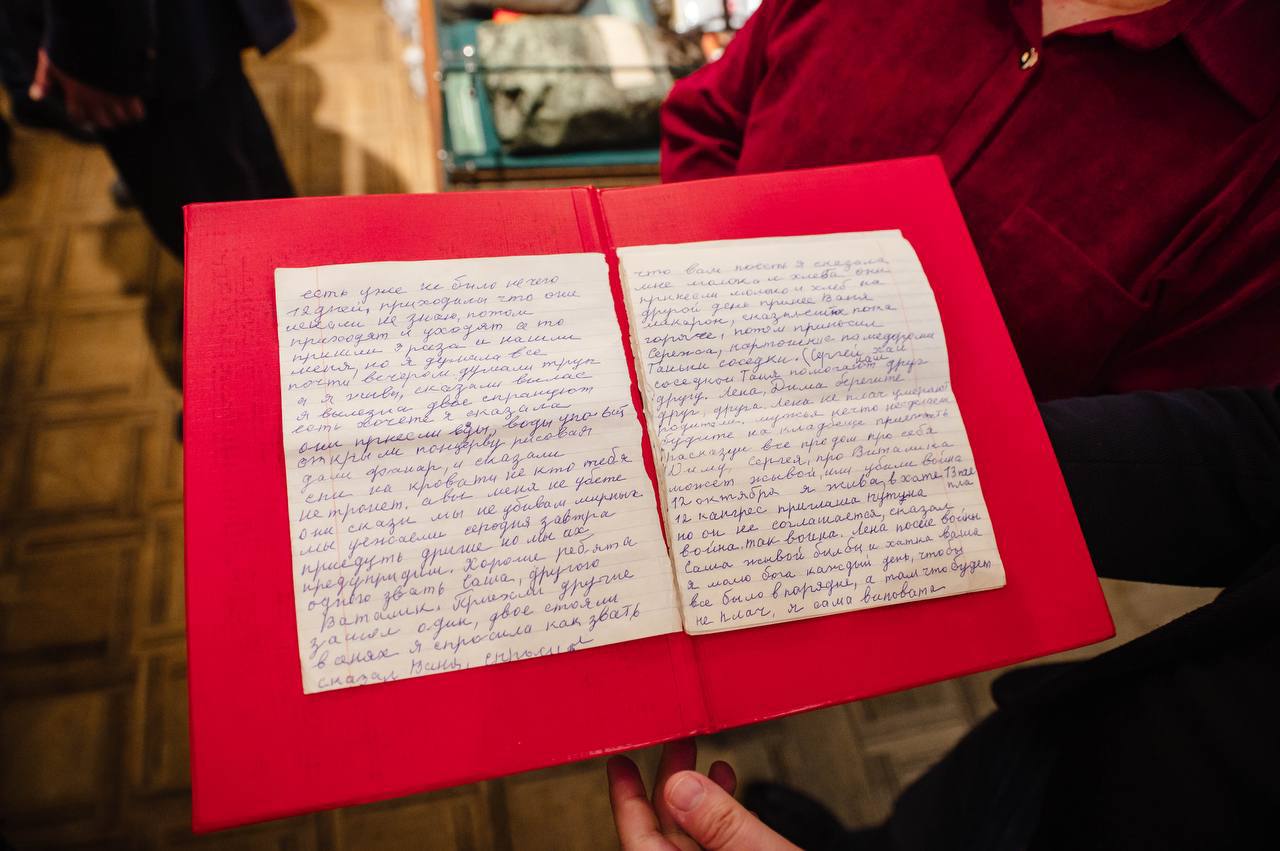 есть уже не было нечего
12 дней, приходили что они
искали не знаю, потом
приходят и уходят се то
пришли 3 раза и нашли
меня, но я думала все
почти вечером думали труп
а я жива, сказали вылас
я вылезла двое спрашуют
есть хочете я сказала
они принесли еды, воды
открыли консерву рисовая
дали фанар, и сказали
спи на кровати не кто тебя
не тронет. а вы меня не убете
они скази мы не убивам мирных
мы уежаем сегодня завтра
приедуть другие но мы их
предупридим. Хороше ребята
одного звать Саша, другого
Виталик. Приехали другие
зашел один, двое стояли
в сенях я спросила как звать
сказал Ваня, спросил
что вам поесть я сказала
мне молока и хлеба они
принесли молоко и хлеб на
другой день принес Ваня
макарон, сказал ешь пока
горяче, потом приносил
Сережа, картошение памедорами
Таньки соседки. (Сергей хай
соседкой Таня помогают друг
нам
другу. Лена, Дима берегите
друг, друга Лена не плач умерают
родители, мужья нечто не
будите на кладбеще приезжать
расказуй все про дом про себя
Диму, Сергея, про Виталика
может жывой, или убили война
12 октября я жива в хате 13 тже
12 кангрес приглаша путуна
но он не соглашается, сказал
война так война. Лена после войны
Саша жывой билбы и хатка ваша
я молю бога каждый день, чтобы
все было в парядке, а там что будет
не плач, я сама виновата